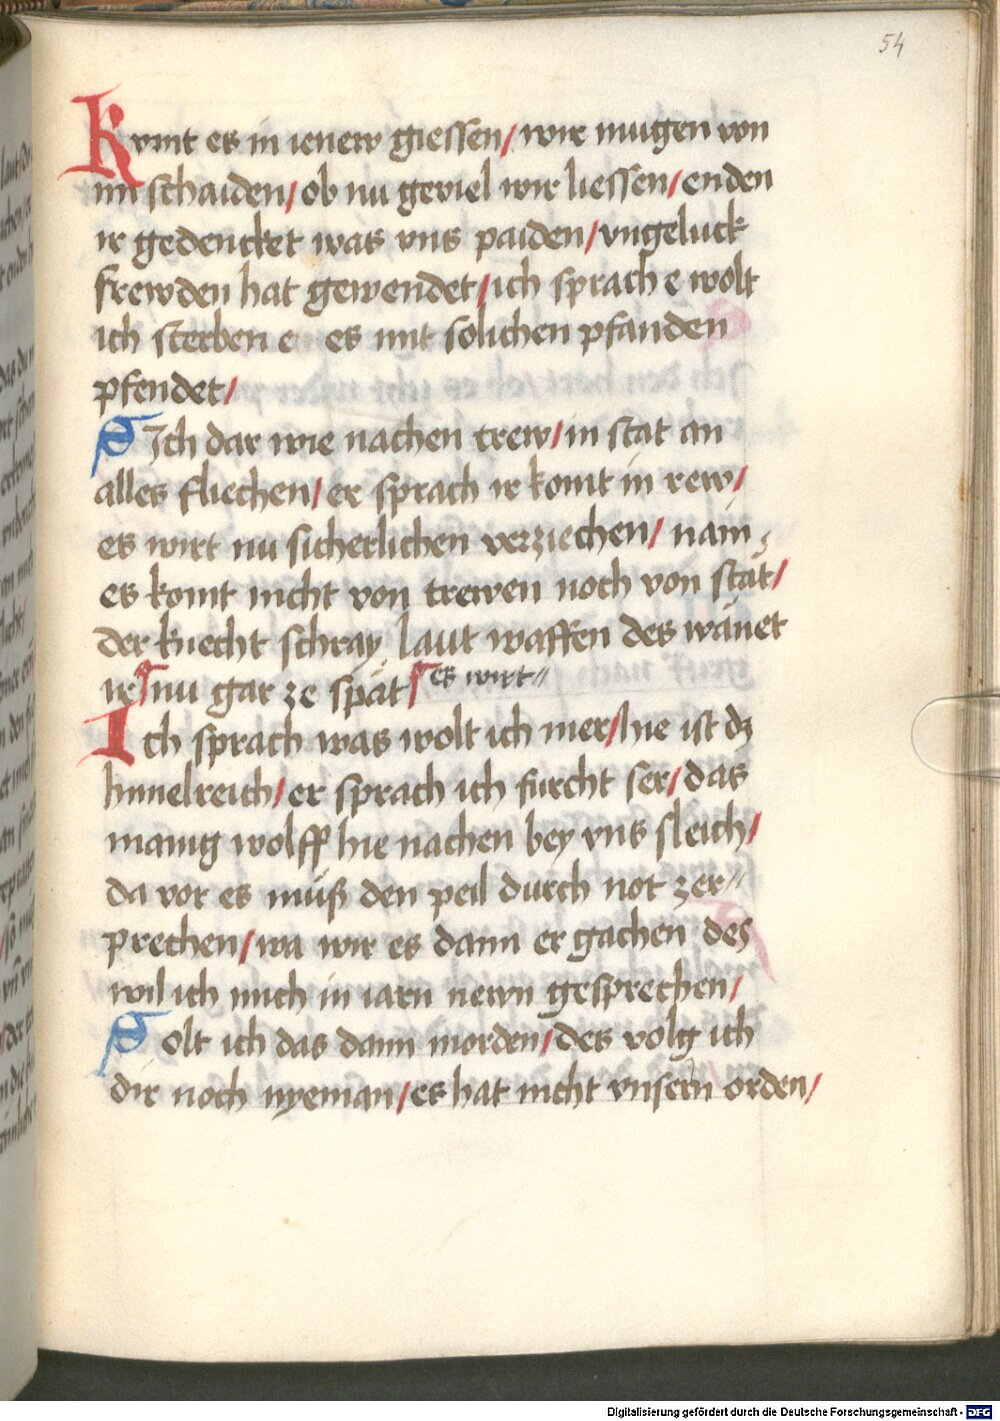 54
Kvmt es in ienew giessen/ wir mugen von
im schaiden/ ob nu geviel wir liessen/ enden
ir gedencket was vns paiden/ vngeluck
frewden hat gewendet/ ich sprach e wolt
ich sterben e es mit solichen pfanden
pfendet/
Sich dar wie nachen trew/ in stat an
alles fliechen/ er sprach ir komt in rew/
es wirt nu sicherlichen verziechen/ nain
es komt nicht von trewen noch von stät/
der knecht schray laut waffen des wänet
ir nu gar ze spät es wirt〃
Ich sprach was wolt ich mer/ hie ist dz
himelreich/ er sprach ich furcht ser/ das
manig wolff hie nachen bey vns sleich/
da vor es müß den peil durch not zer〃
prechen/ wa wir es dann er gachen des
wil ich mich in iarn newn gesprechen/
Solt ich das dann morden/ des volg ich
dir noch nyeman/ es hat nicht vnsern orden/
Digitalisierung gefördert durch die Deutsche Forschungsgemeinschaft - DFG